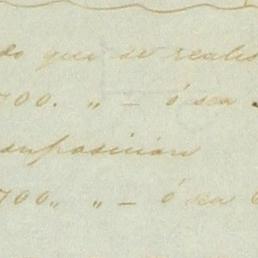 do que se realis
700. " - ó sea
suposicion
700,, " - ó sea